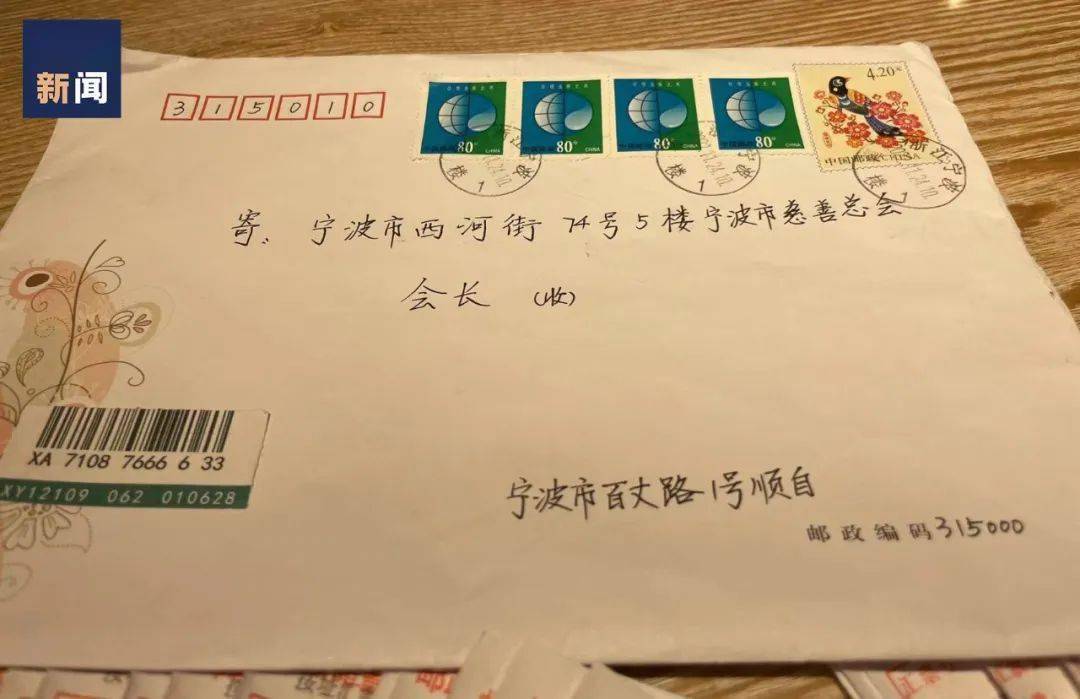 新闻
315010
80 CHINA
80 CHINA
80 CHINA
80 CHINA
4.20元
中国邮政 CHINA
浙江宁波
寄、宁波市西河街74号5楼宁波市慈善总会
会长 (收)
XA 7108 7666 6 33
XY12109 062 010628
宁波市百丈路1号顺自
邮政编码315000